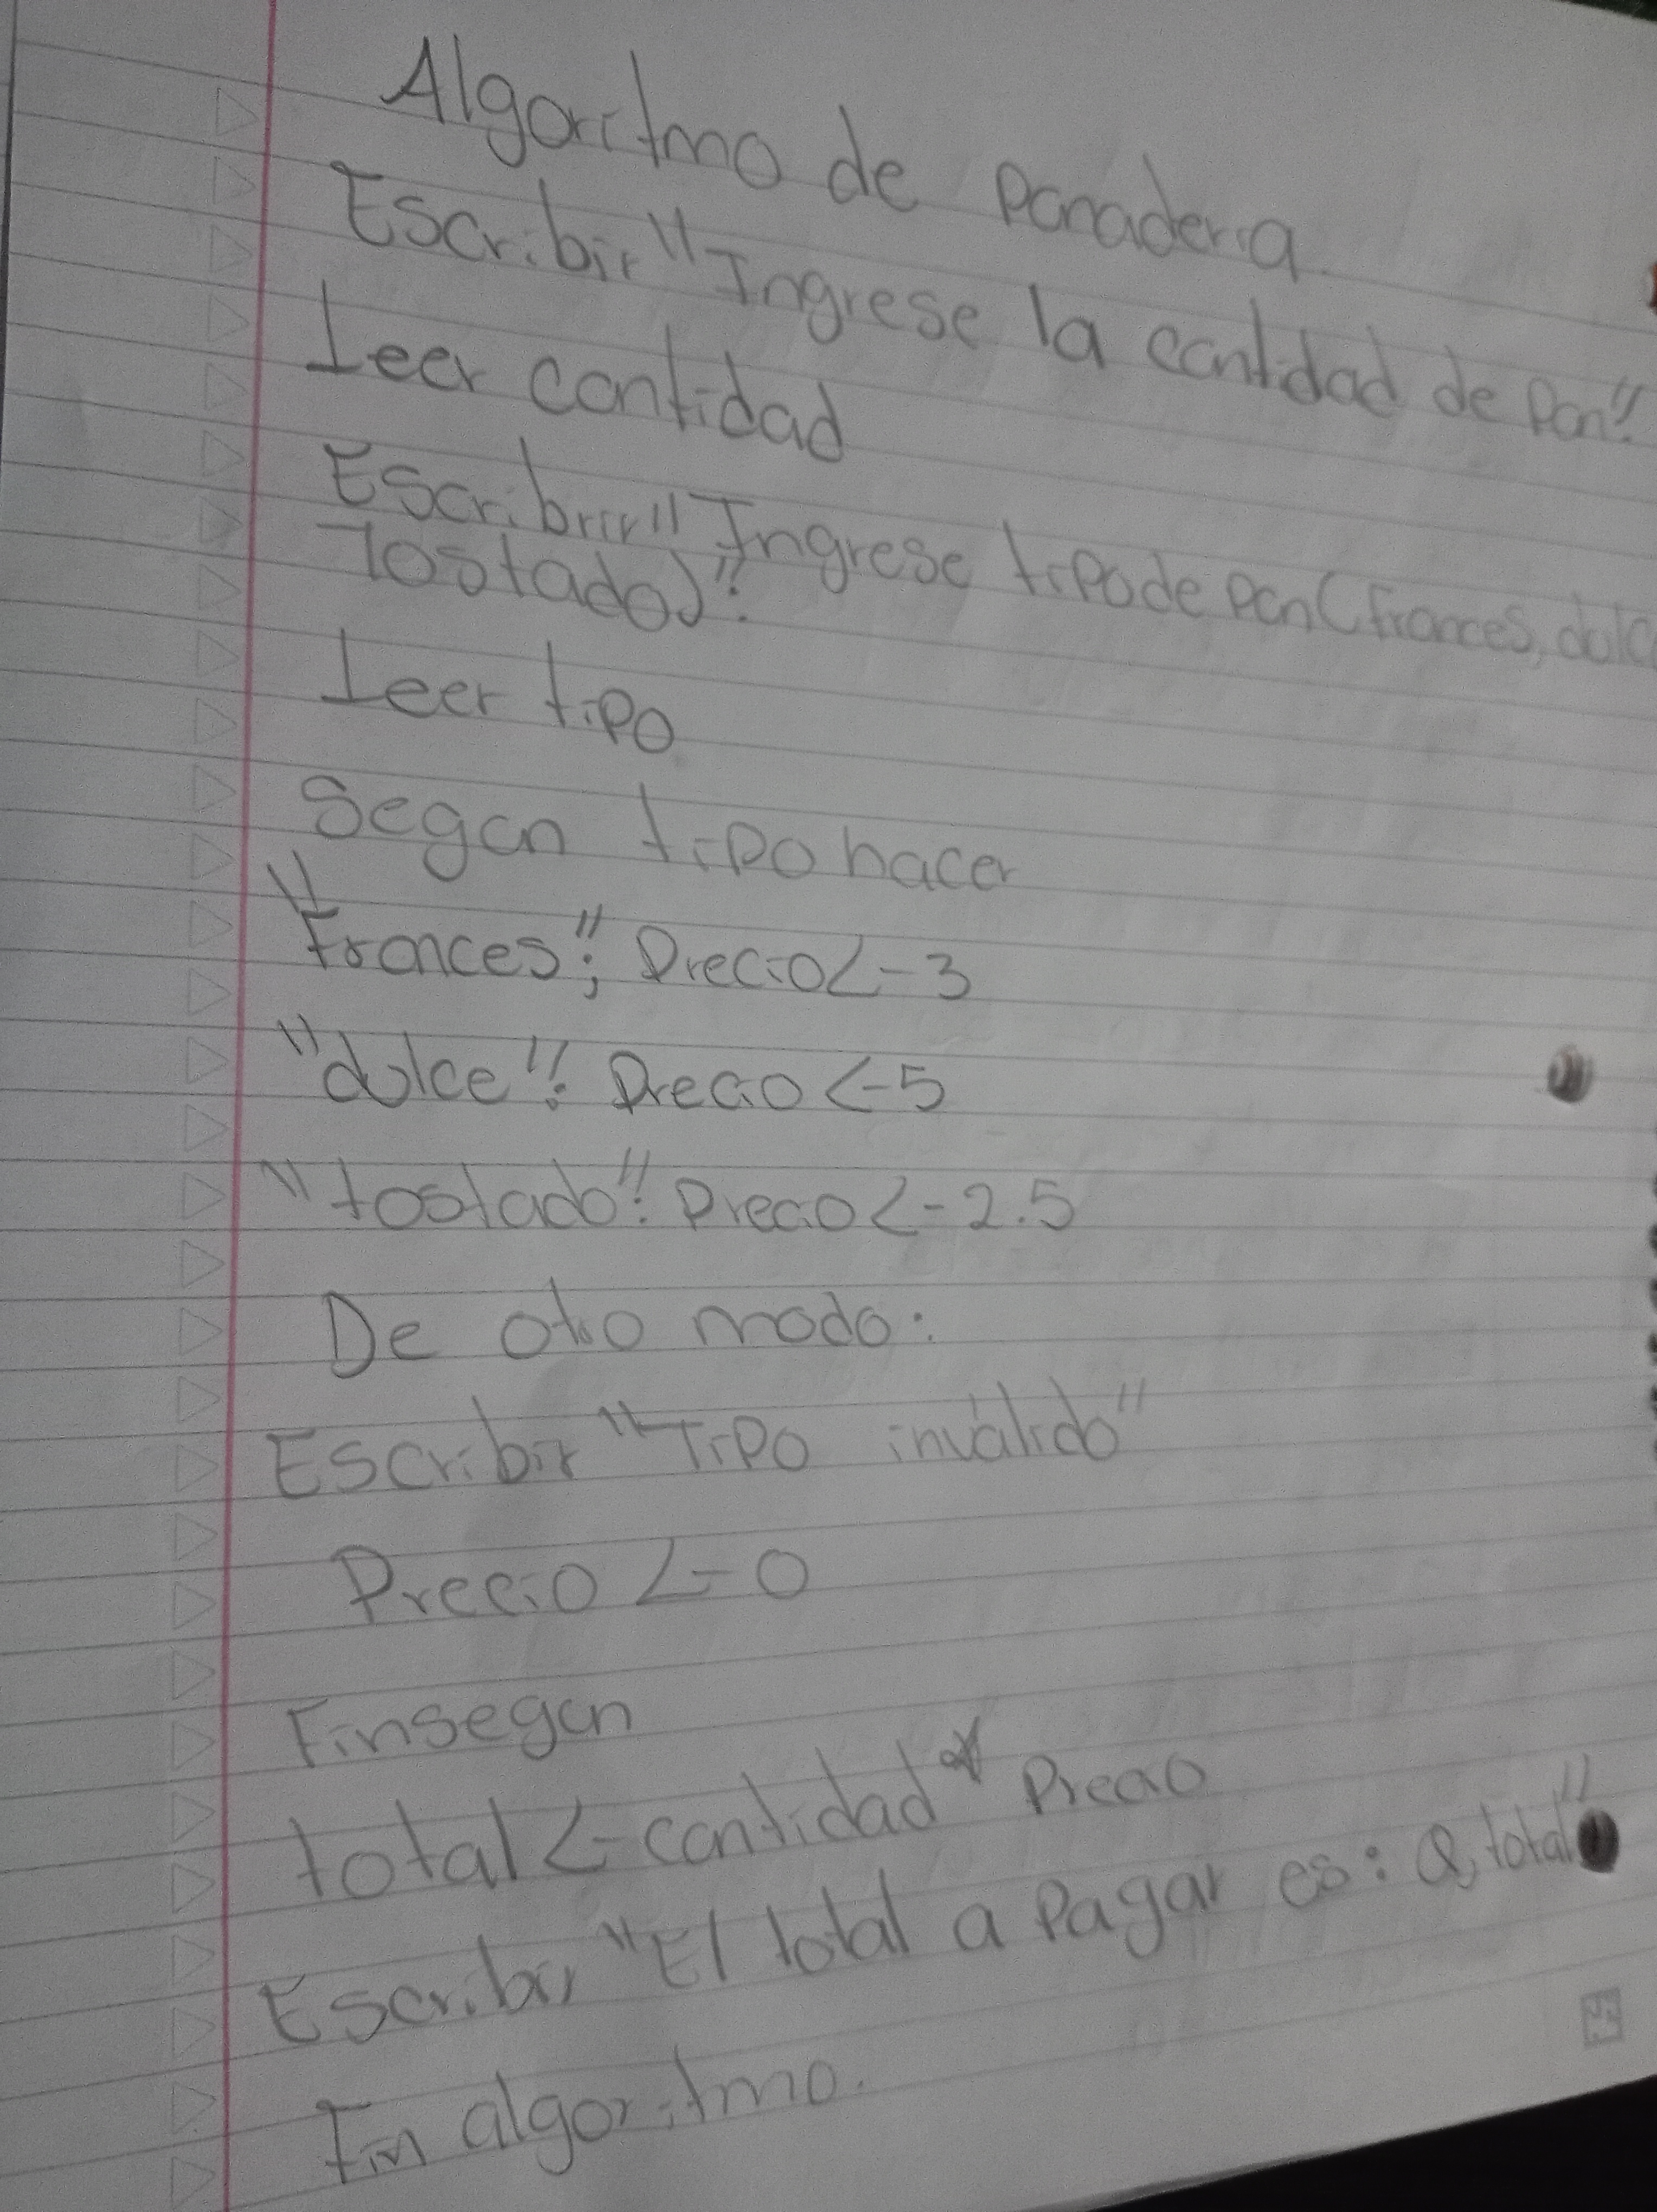 Algoritmo de panaderia
Escribir "Ingrese la cantidad de pan":
Leer cantidad
Escribrir" Ingrese tipo de pan (frances, dulc
Tostado)":
Leer tipo
Segun tipo hacer
"Frances"; Precio <- 3
"dulce": Precio <- 5
"tostado": Precio <- 2.5
De otro modo:
Escribir "Tipo inválido"
Precio <- 0
Finsegun
total <- cantidad * Precio
Escribir "El total a Pagar es: Q, total"
Fin algoritmo.